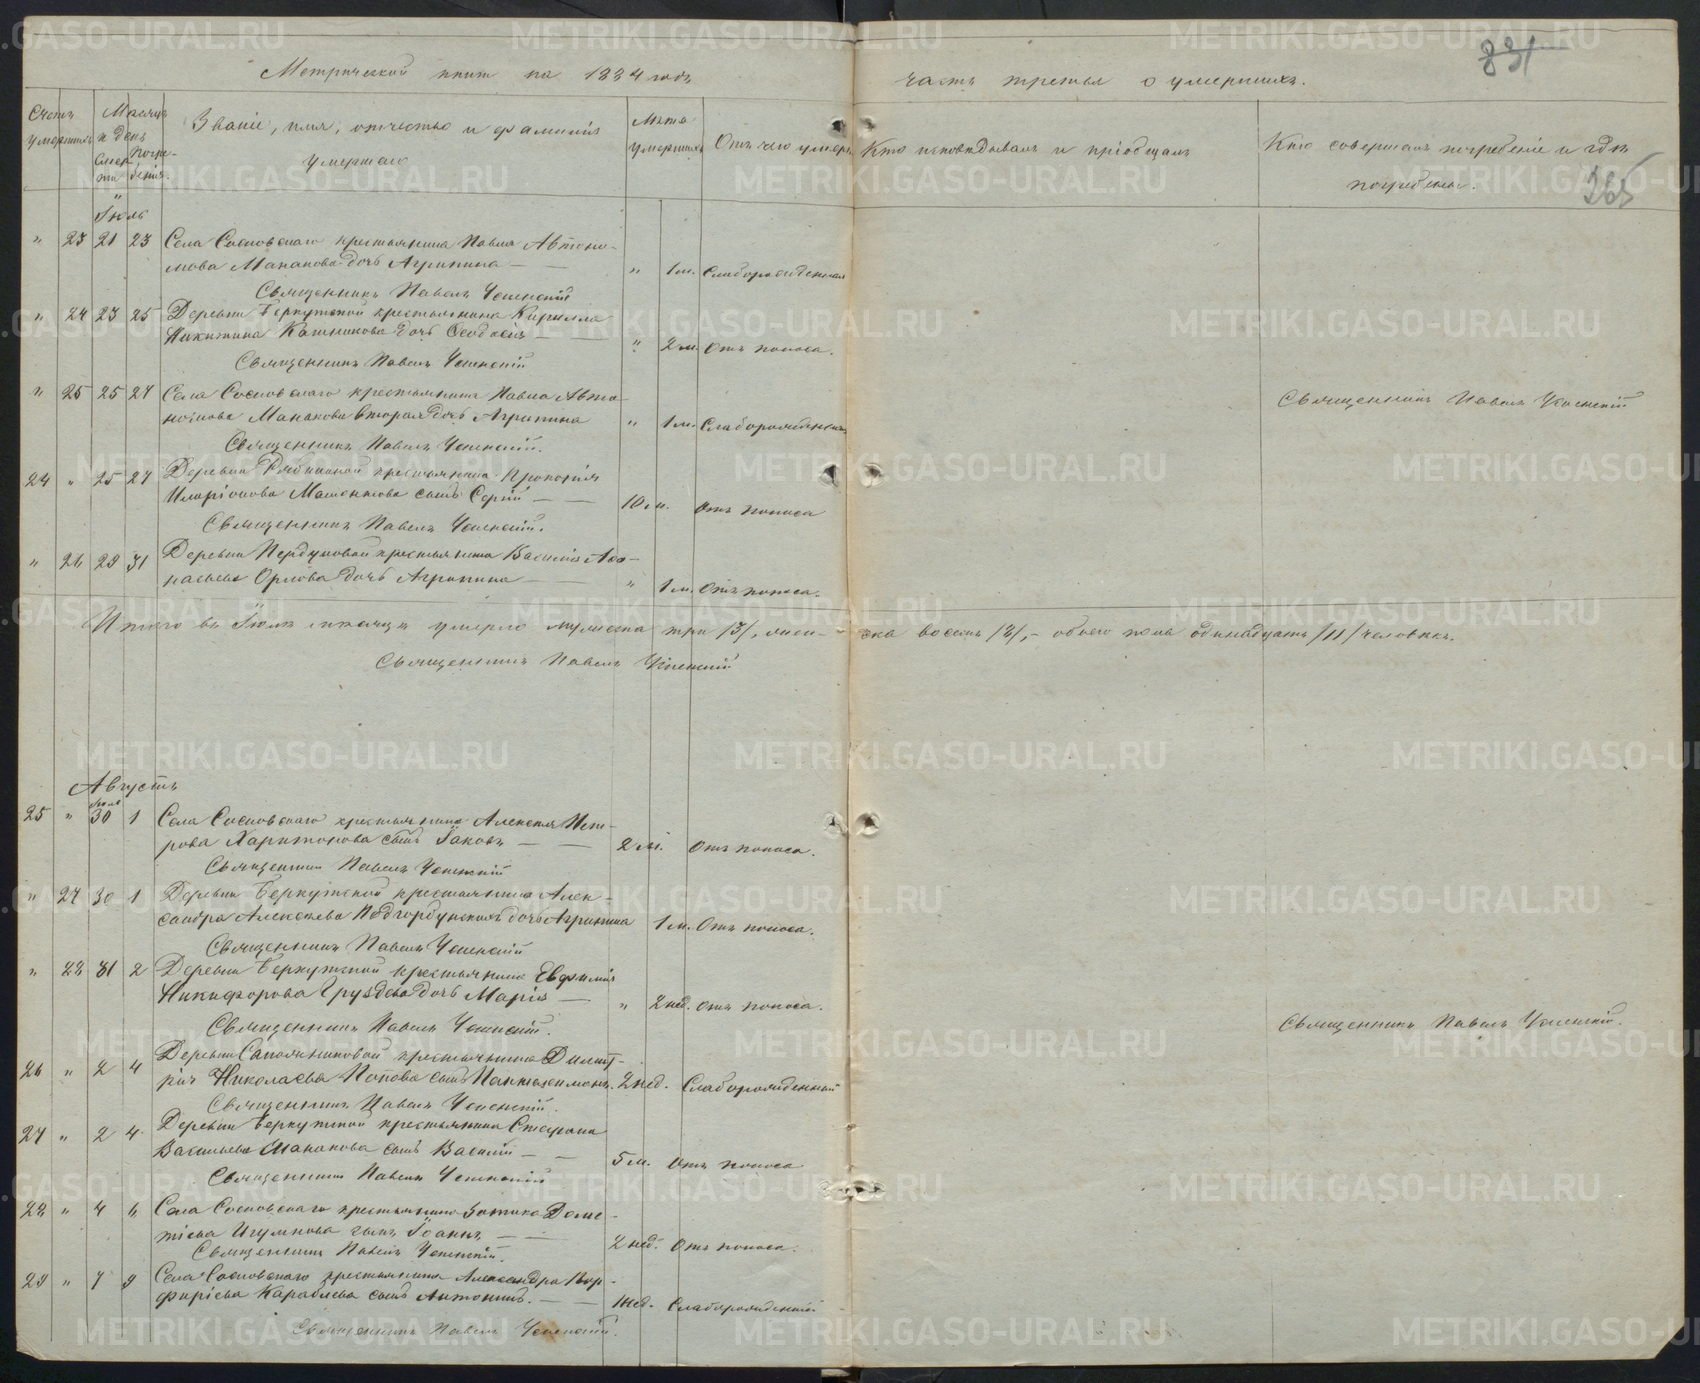 Метрической книги на 1884 годъ
часть третья о умершихъ.
831
365
Счетъ умершихъ
Мѣсяцъ и день
Смерти
Погребенія.
Званіе, имя, отчество и фамилія
умершаго
Лѣта
умершихъ
Отъ чего умеръ
Кто исповѣдывалъ и пріобщалъ
Кто совершалъ погребеніе и гдѣ
погребены.
Іюль
" 23 21 23 Села Сосновскаго крестьянина Павла Автоно-
мова Манакова дочь Агрипина — " 1 м. Слаборожденная
Священникъ Павелъ Успенскій
" 24 23 25 Деревни Беркутской крестьянина Кирилла
Никитина дочь Ѳеодосія — " 2 м. Отъ поноса.
Священникъ Павелъ Успенскій
" 25 25 27 Села Сосновскаго крестьянина Павла Авто-
номова Манакова вторая дочь Агрипина " 1 м. Слаборожденная
Священникъ Павелъ Успенскій.
Священникъ Павелъ Успенскій
24 " 25 27 Деревни крестьянина Прокопія
Иларіонова сынъ Сергій — 10 м. Отъ поноса
Священникъ Павелъ Успенскій.
" 26 29 31 Деревни крестьянина Василія Аѳа-
насьева Орлова дочь Агрипина — " 1 м. Отъ поноса.
Итого въ Іюлѣ мѣсяцѣ умерло мужеска три /3/, жен-
ска восемь /8/, - обоего пола одинадцать /11/ человѣкъ.
Священникъ Павелъ Успенскій
Августъ
Іюля
25 " 30 1 Села Сосновскаго крестьянина Алексѣя Пет-
рова Харитонова сынъ Іаковъ — 2 м. Отъ поноса.
Священникъ Павелъ Успенскій
" 27 30 1 Деревни Беркутской крестьянина Алек-
сандра Алексѣева дочь Агрипина 1 м. Отъ поноса.
Священникъ Павелъ Успенскій
" 28 31 2 Деревни Беркутской крестьянина Евфимія
Никифорова Груздева дочь Марія — " 2 нед. Отъ поноса.
Священникъ Павелъ Успенскій.
Священникъ Павелъ Успенскій.
26 " 2 4 Деревни Сапожниковой крестьянина Димит-
рія Николаева Попова сынъ Пантелеимонъ. 2 нед. Слаборожденный
Священникъ Павелъ Успенскій.
27 " 2 4 Деревни Беркутской крестьянина Стефана
Васильева Манакова сынъ Василій — 5 м. Отъ поноса
Священникъ Павелъ Успенскій
28 " 4 6 Села Сосновскаго крестьянина Зотика Доме-
тіева Игумнова сынъ Іоаннъ — 2 нед. Отъ поноса.
Священникъ Павелъ Успенскій.
29 " 7 9 Села Сосновскаго крестьянина Александра Пор-
фирьева Караблева сынъ Антонинъ. — 1 нед. Слаборожденный
Священникъ Павелъ Успенскій.
METRIKI.GASO-URAL.RU